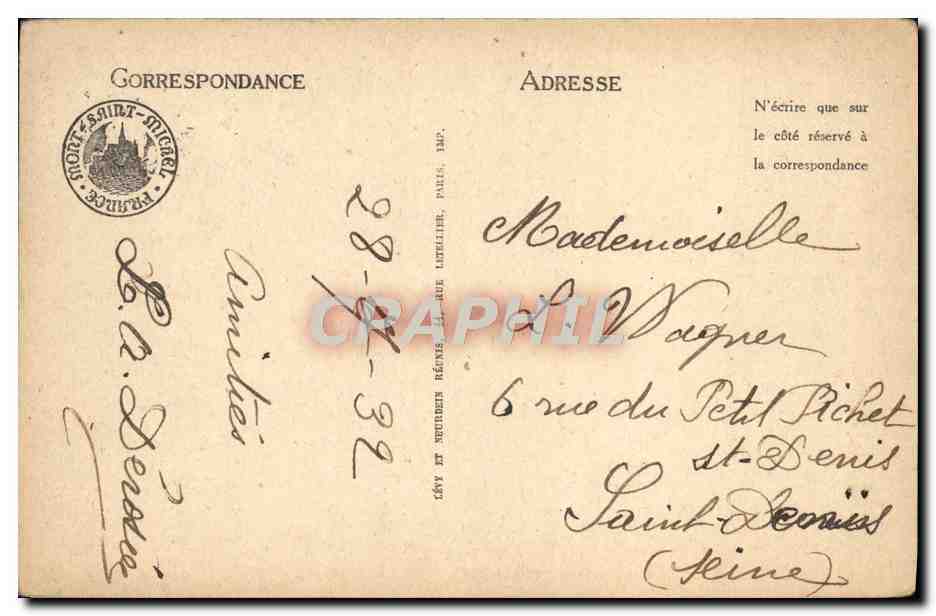 CORRESPONDANCE
MONT-SAINT-MICHEL
FRANCE
28- -32
Amitiés
ADRESSE
N'écrire que sur
le côté réservé à
la correspondance
LÉVY ET NEURDEIN RÉUNIS, 44, RUE LETELLIER, PARIS, IMP.
Mademoiselle
L. Wagner
6 rue du Petit Pichet
St-Denis
Saint-Denis
(Seine)
CRAPHIL